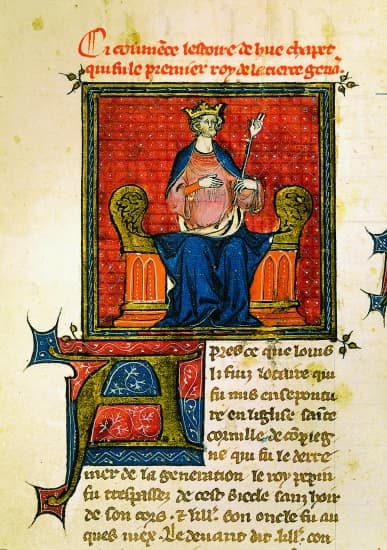 Ci coumẽce lestoire de hue chapet
qui fu le premier roy de la tierce genã.
Apres ce que louis
li fiuz lotaire qui
fu mis en sepoutu
re en leglise saĩte
cornille de cõpieg
ne qui fu le derre
nier de la generation le roy pepin
fu trespassez de cest siecle sanz hoir
de son cors . son oncle fu au
ques niex . Le devant dit con